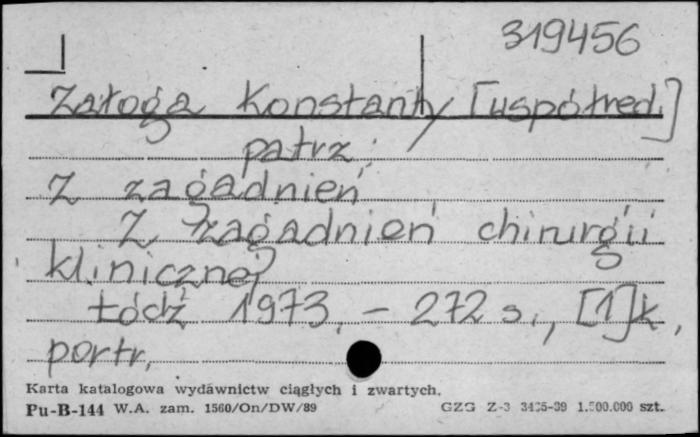 319456
Załoga Konstanty [współred.]
patrz:
Z zagadnień
Z zagadnień chirurgii
klinicznej
Łódź 1973. – 272 s., [1] k,
portr.
Karta katalogowa wydáwnictw ciągłych i zwartych.
Pu-B-144 W.A. zam. 1560/On/DW/89 GZG Z-3 1.500.000 szt.